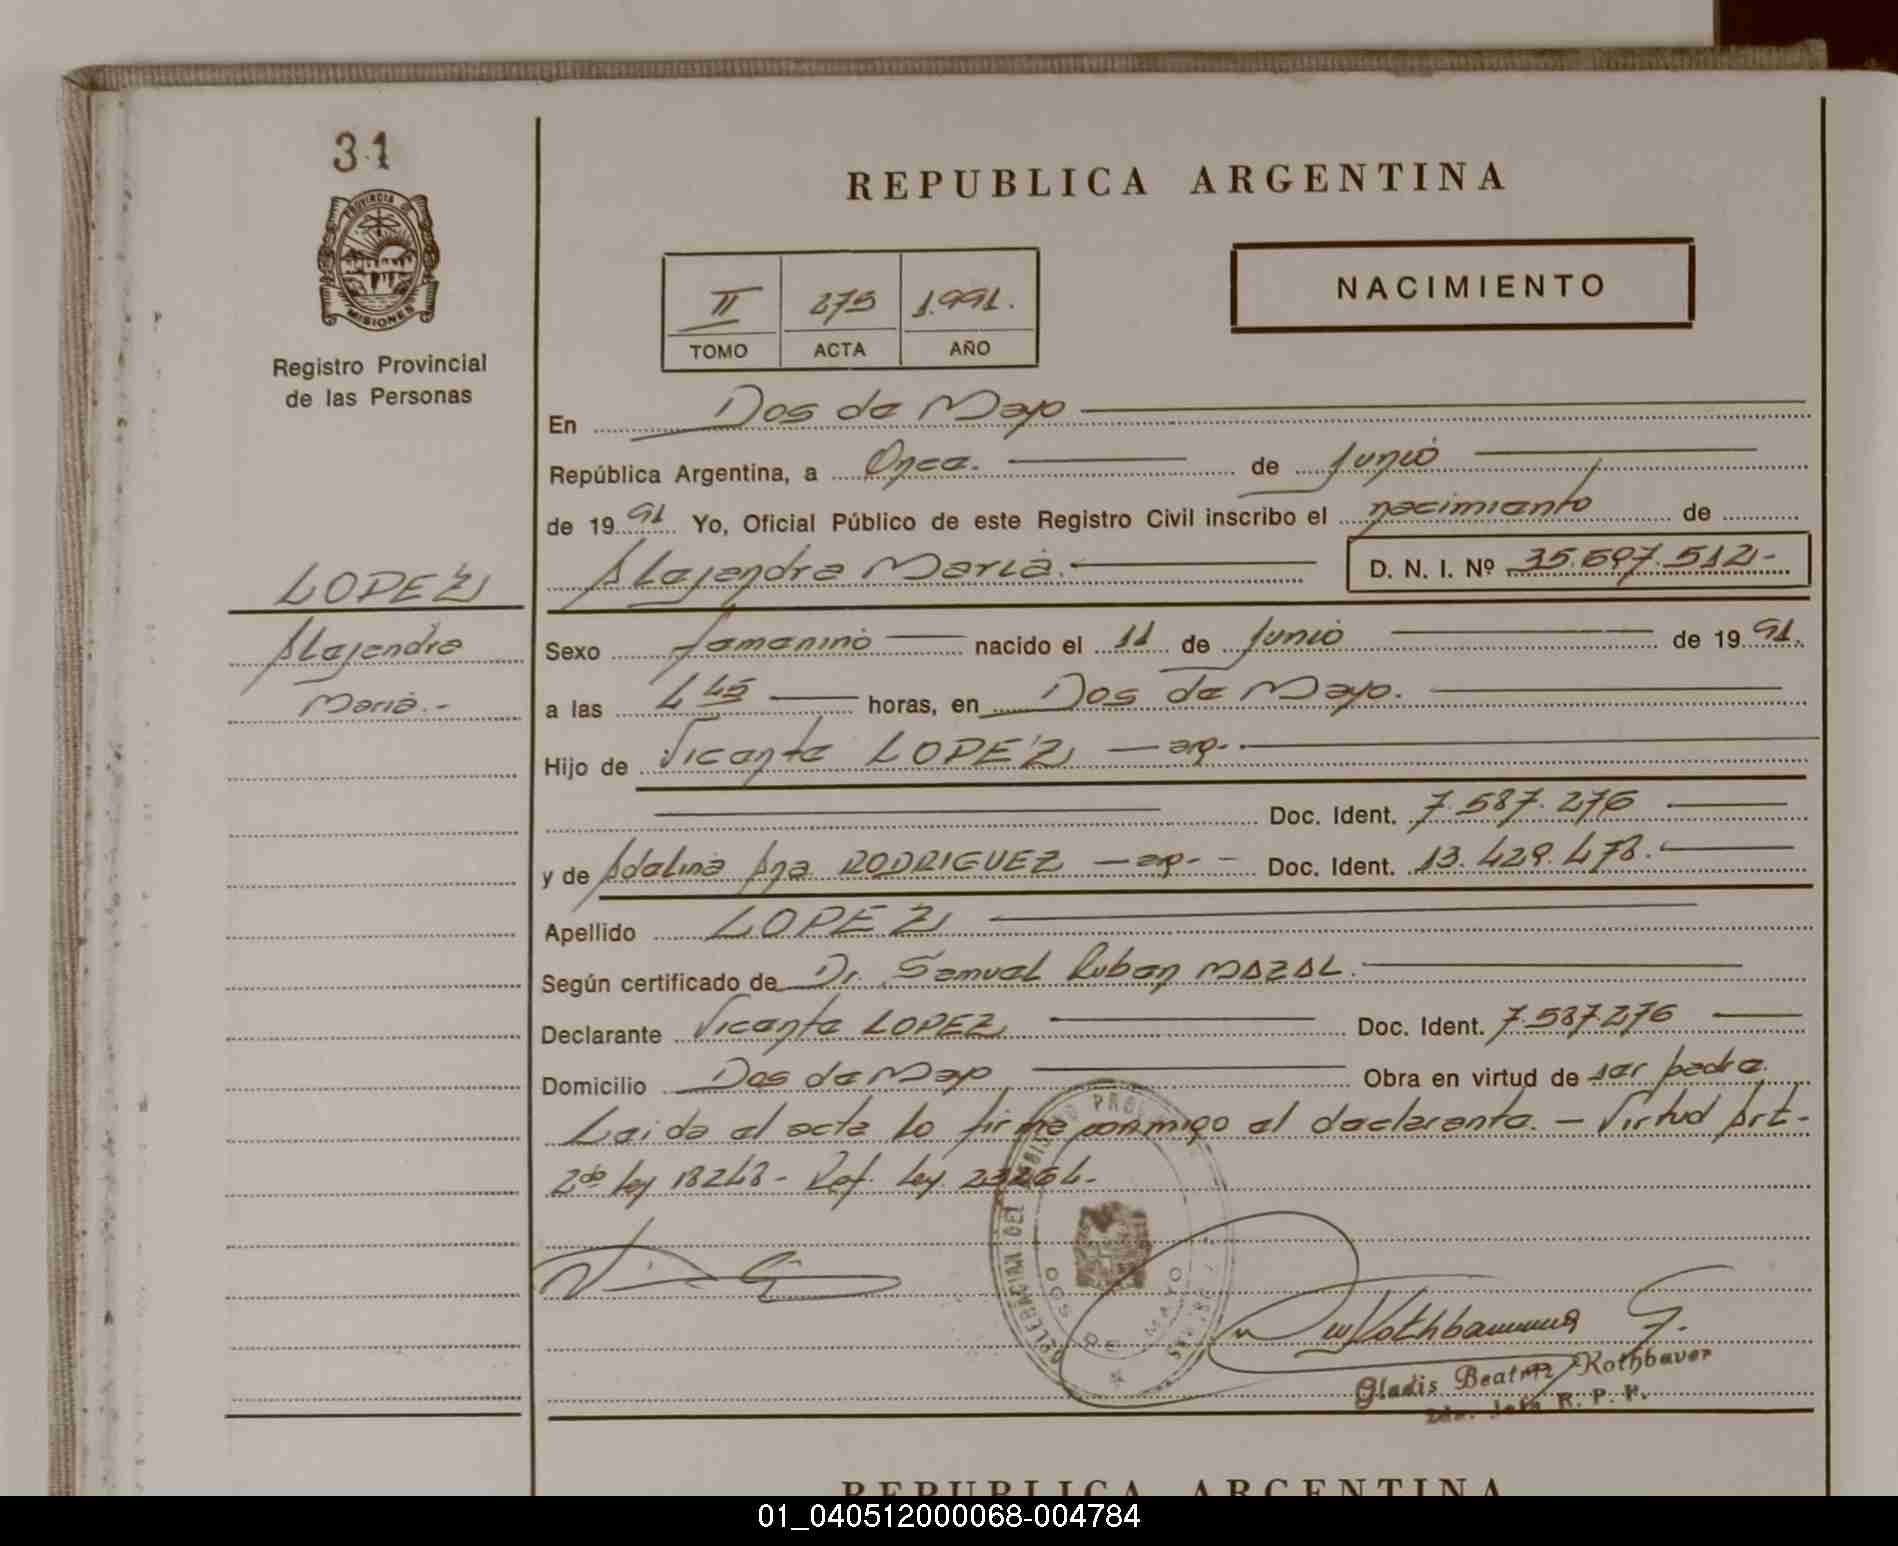 31
PROVINCIA DE
MISIONES
Registro Provincial
de las Personas
REPUBLICA ARGENTINA
NACIMIENTO
II 275 1.991.
TOMO ACTA AÑO
En Dos de Mayo
República Argentina, a Once. de Junio
de 19 91 Yo, Oficial Público de este Registro Civil inscribo el nacimiento de
Alejandra Maria. D. N. I. Nº 35.697.512-
LOPEZ
Alejandra
Maria.-
Sexo femenino nacido el 11 de Junio de 19 91.
a las 4 45 horas, en Dos de Mayo.
Hijo de Vicente LOPEZ — arg.
Doc. Ident. 7.587.276
y de Adelina Ana RODRIGUEZ — arg. - Doc. Ident. 13.429.478.
Apellido LOPEZ
Según certificado de Dr. Samuel Ruben MAZAL.
Declarante Vicente LOPEZ Doc. Ident. 7.587.276
Domicilio Dos de Mayo Obra en virtud de ser padre.
Leida el acta la firma conmigo el declarante. — Virtud Art-
2do ley 18248- Ref. ley 23264-
DOS DE MAYO
Gladis Beatriz Rothbaver
R. P. P.
REPUBLICA ARGENTINA
01_040512000068-004784